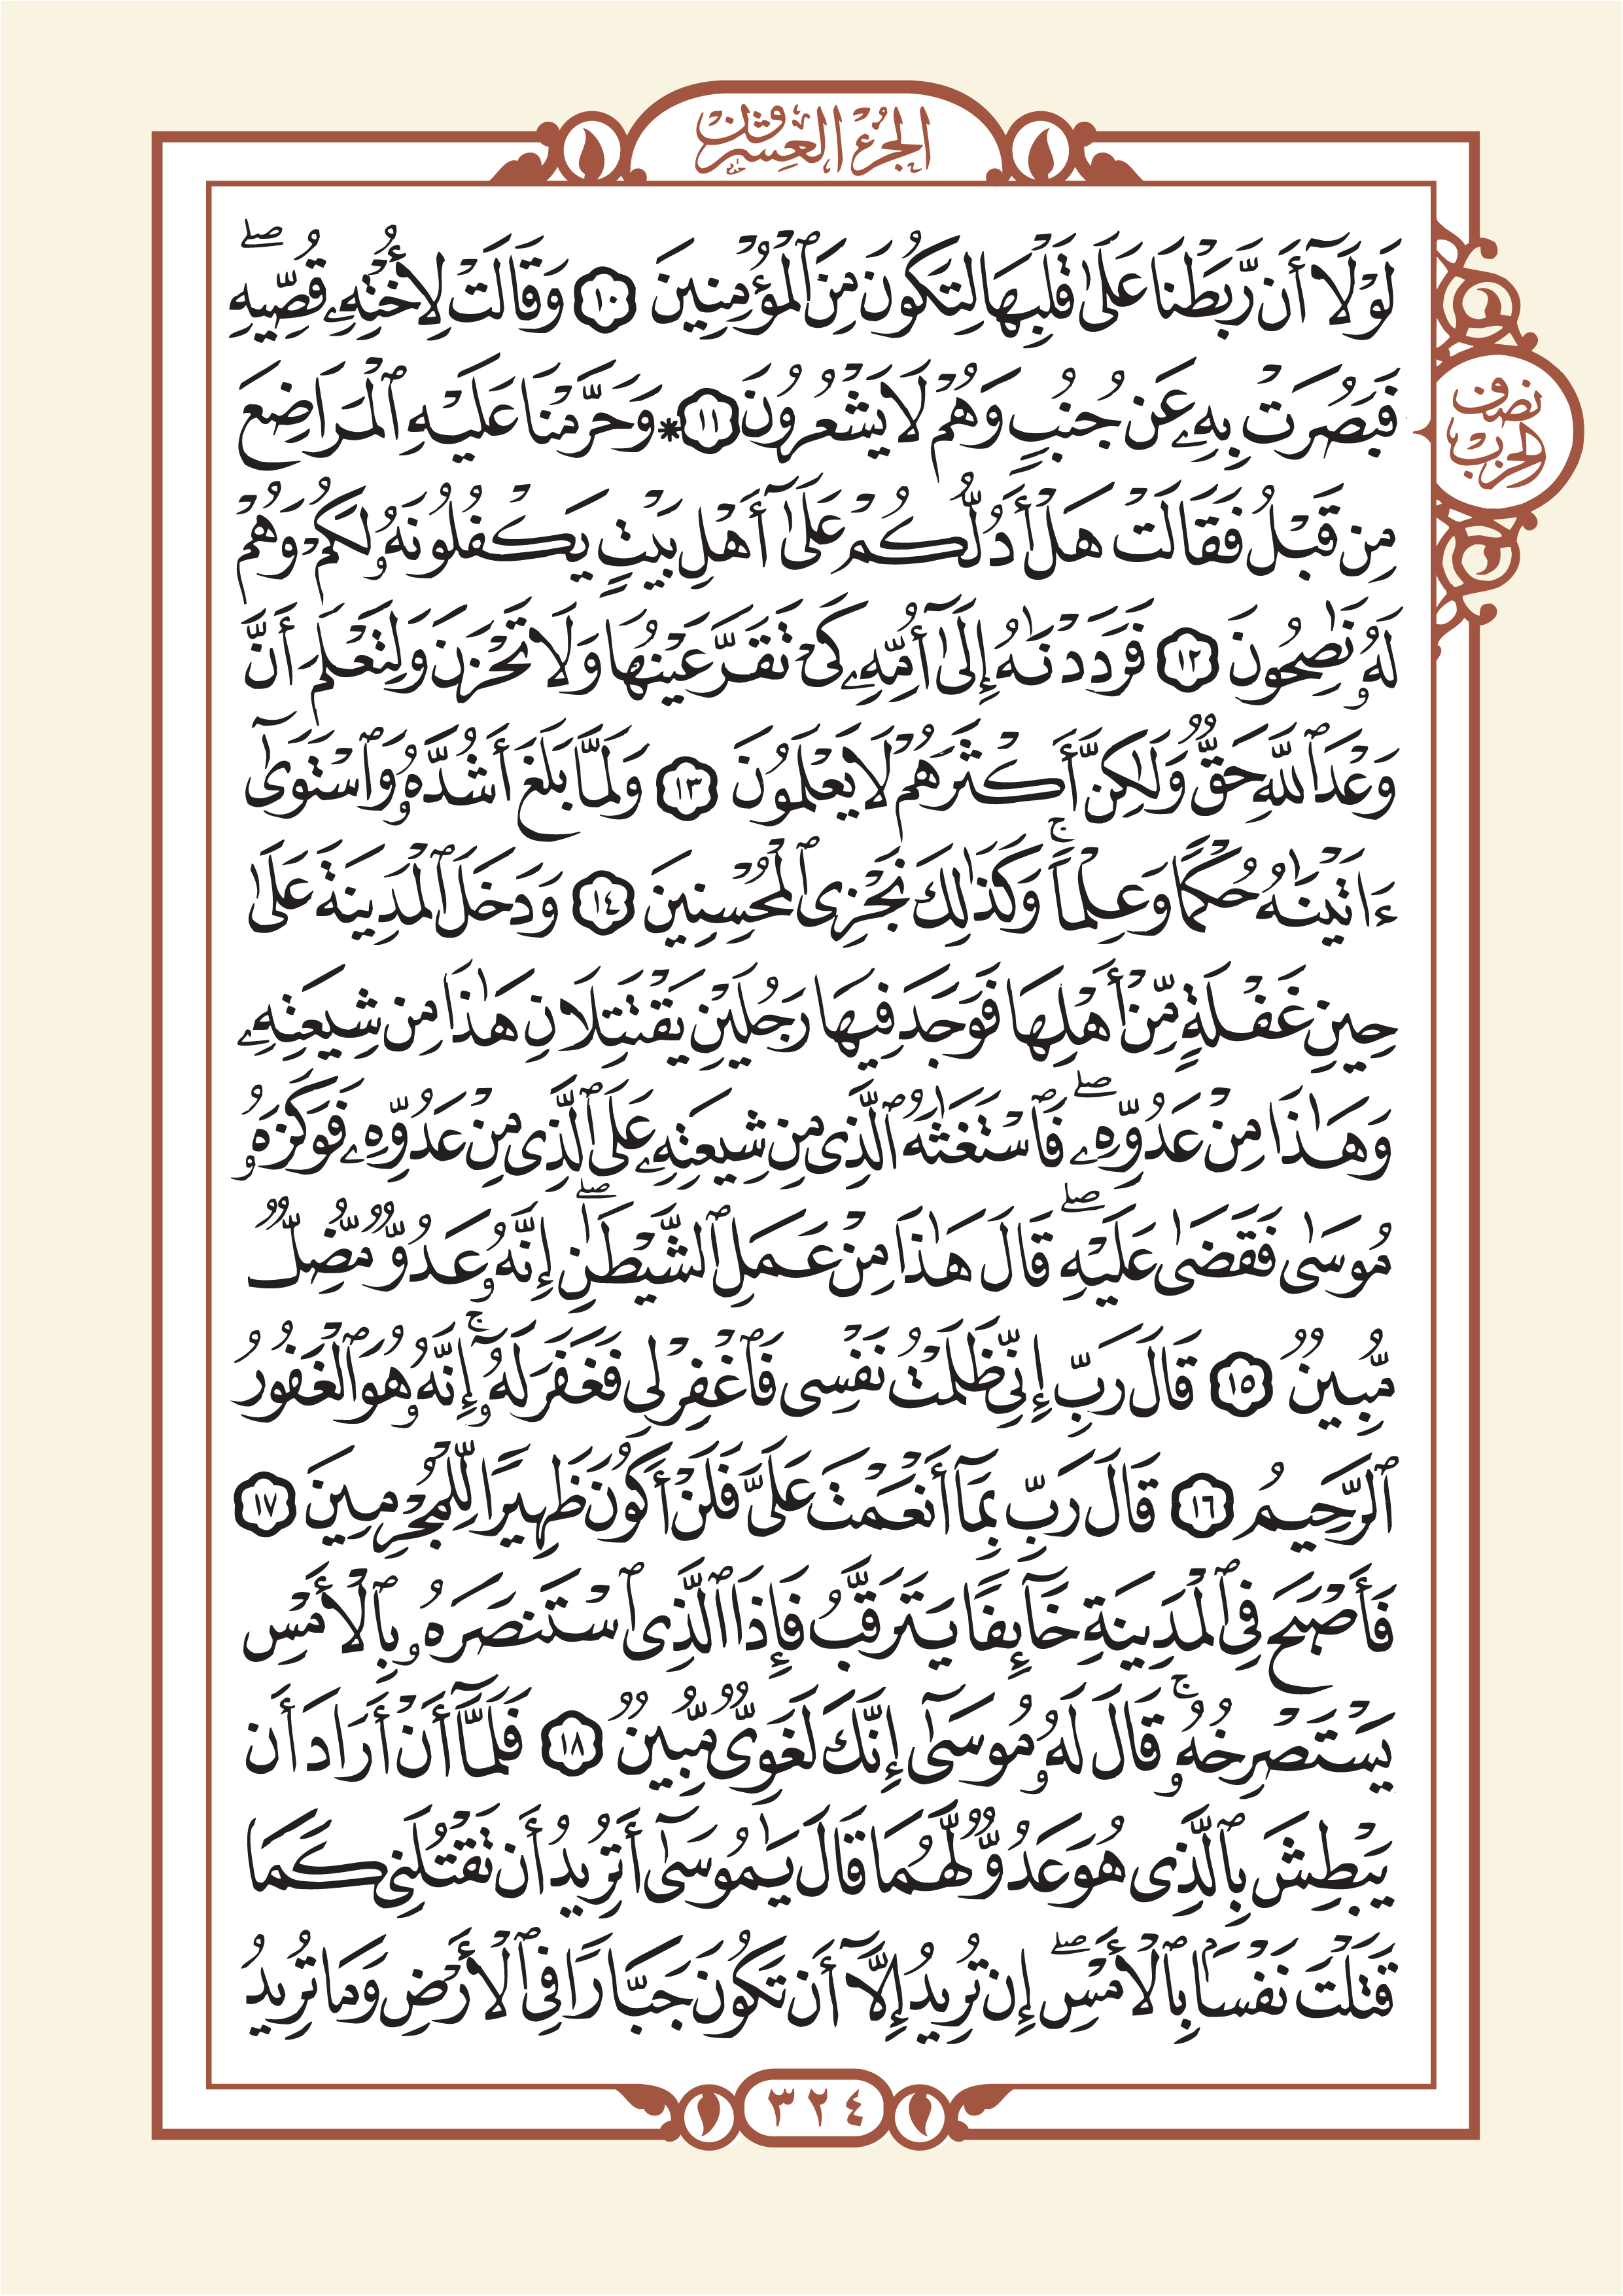 الجزء العشرون
لَوْلَآ أَن رَّبَطْنَا عَلَىٰ قَلْبِهَا لِتَكُونَ مِنَ ٱلْمُؤْمِنِينَ ١٠ وَقَالَتْ لِأُخْتِهِۦ قُصِّيهِ ۖ
فَبَصُرَتْ بِهِۦ عَن جُنُبٍ وَهُمْ لَا يَشْعُرُونَ ١١ * وَحَرَّمْنَا عَلَيْهِ ٱلْمَرَاضِعَ
نصف الحزب
مِن قَبْلُ فَقَالَتْ هَلْ أَدُلُّكُمْ عَلَىٰٓ أَهْلِ بَيْتٍ يَكْفُلُونَهُۥ لَكُمْ وَهُمْ
لَهُۥ نَٰصِحُونَ ١٢ فَرَدَدْنَٰهُ إِلَىٰٓ أُمِّهِۦ كَىْ تَقَرَّ عَيْنُهَا وَلَا تَحْزَنَ وَلِتَعْلَمَ أَنَّ
وَعْدَ ٱللَّهِ حَقٌّ وَلَٰكِنَّ أَكْثَرَهُمْ لَا يَعْلَمُونَ ١٣ وَلَمَّا بَلَغَ أَشُدَّهُۥ وَٱسْتَوَىٰٓ
ءَاتَيْنَٰهُ حُكْمًا وَعِلْمًا ۚ وَكَذَٰلِكَ نَجْزِى ٱلْمُحْسِنِينَ ١٤ وَدَخَلَ ٱلْمَدِينَةَ عَلَىٰ
حِينِ غَفْلَةٍ مِّنْ أَهْلِهَا فَوَجَدَ فِيهَا رَجُلَيْنِ يَقْتَتِلَانِ هَٰذَا مِن شِيعَتِهِۦ
وَهَٰذَا مِنْ عَدُوِّهِۦ ۖ فَٱسْتَغَٰثَهُ ٱلَّذِى مِن شِيعَتِهِۦ عَلَى ٱلَّذِى مِنْ عَدُوِّهِۦ فَوَكَزَهُۥ
مُوسَىٰ فَقَضَىٰ عَلَيْهِ ۖ قَالَ هَٰذَا مِنْ عَمَلِ ٱلشَّيْطَٰنِ ۖ إِنَّهُۥ عَدُوٌّ مُّضِلٌّ
مُّبِينٌ ١٥ قَالَ رَبِّ إِنِّى ظَلَمْتُ نَفْسِى فَٱغْفِرْ لِى فَغَفَرَ لَهُۥٓ ۚ إِنَّهُۥ هُوَ ٱلْغَفُورُ
ٱلرَّحِيمُ ١٦ قَالَ رَبِّ بِمَآ أَنْعَمْتَ عَلَىَّ فَلَنْ أَكُونَ ظَهِيرًا لِّلْمُجْرِمِينَ ١٧
فَأَصْبَحَ فِى ٱلْمَدِينَةِ خَآئِفًا يَتَرَقَّبُ فَإِذَا ٱلَّذِى ٱسْتَنصَرَهُۥ بِٱلْأَمْسِ
يَسْتَصْرِخُهُۥ ۚ قَالَ لَهُۥ مُوسَىٰٓ إِنَّكَ لَغَوِىٌّ مُّبِينٌ ١٨ فَلَمَّآ أَنْ أَرَادَ أَن
يَبْطِشَ بِٱلَّذِى هُوَ عَدُوٌّ لَّهُمَا قَالَ يَٰمُوسَىٰٓ أَتُرِيدُ أَن تَقْتُلَنِى كَمَا
قَتَلْتَ نَفْسًۢا بِٱلْأَمْسِ ۖ إِن تُرِيدُ إِلَّآ أَن تَكُونَ جَبَّارًا فِى ٱلْأَرْضِ وَمَا تُرِيدُ
٣٢٤